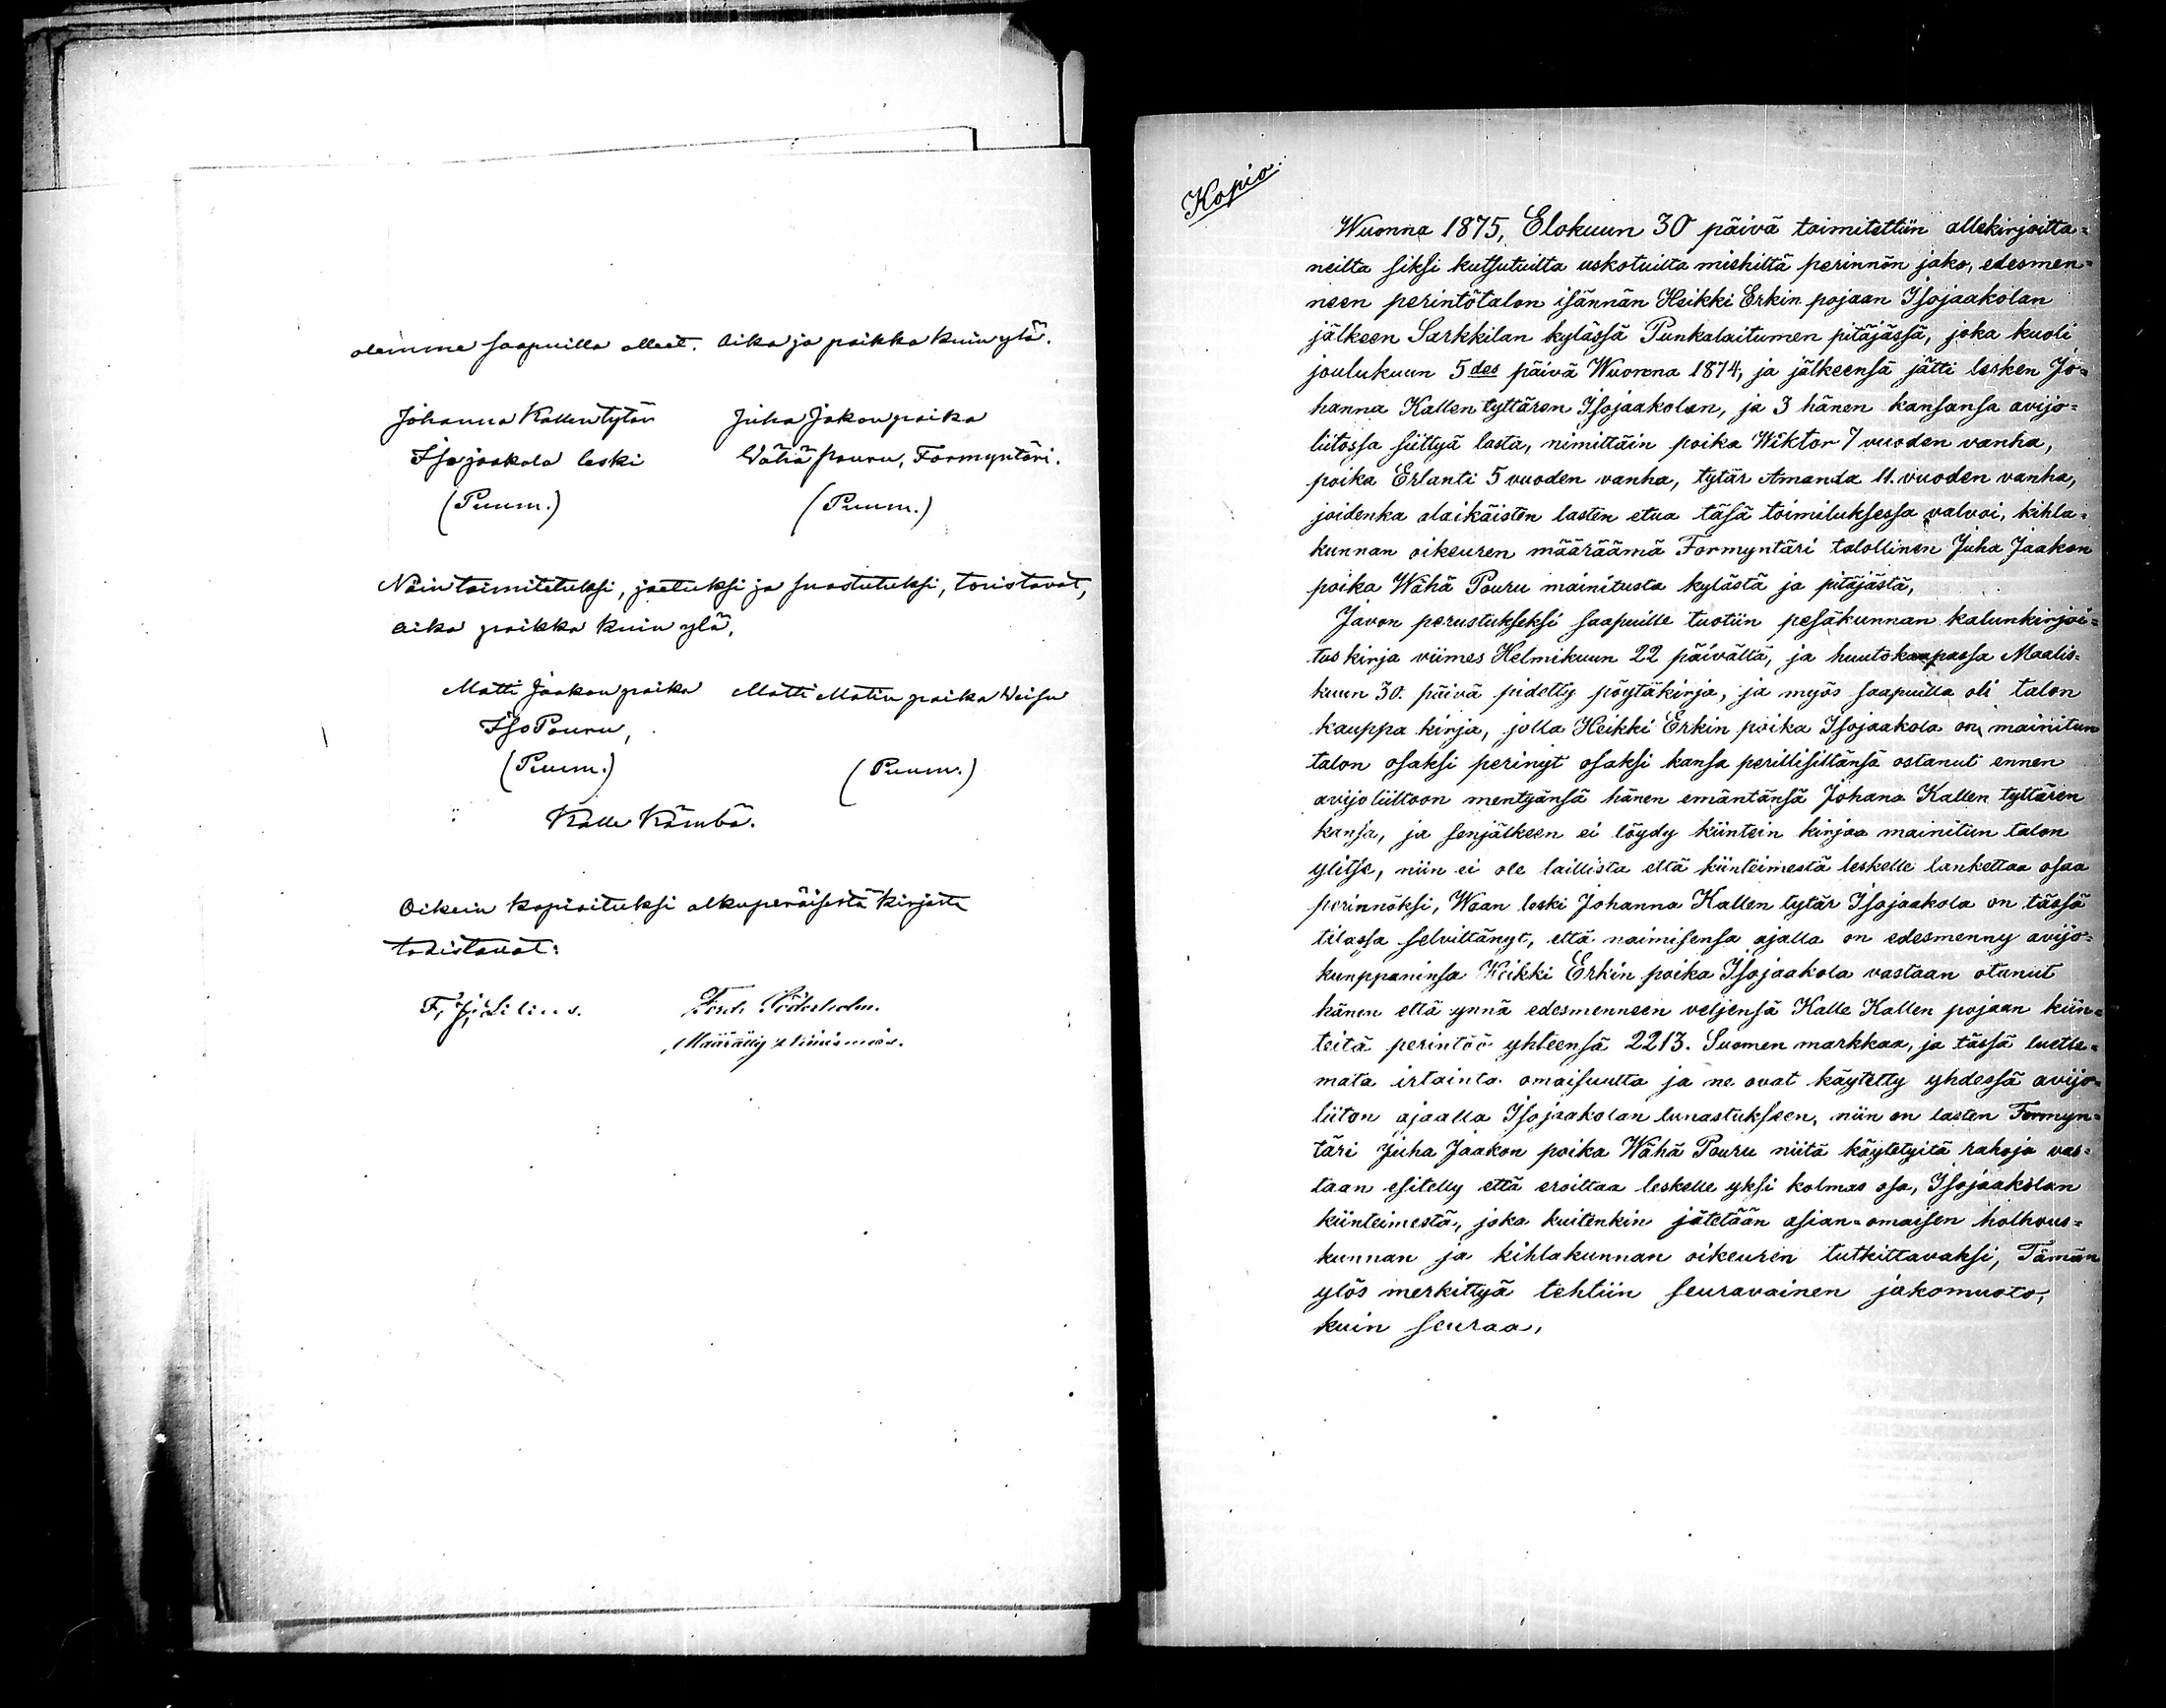 olemme saapuilla olleet. Aika ja paikka kuin ylä.
Johanna Kallentytär Juha Jakonpoika
Isojaakola leski Wähä Pouru, Formyntäri.
(Puum.) (Puum.)
Näin toimitetuksi, jaetuksi ja suostutuksi, toristavat,
aika paikka kuin ylä,
Matti Jaakonpoika Matti Matin poika Weisu
Iso Pouru,
(Puum.) (Puum.)
Kalle Kämbä.
Oikein kopioituksi alkuperäisestä kirjasta
todistavat:
F. J. Silius. Ferd. Söderholm.
Määrätty nimismies.
Kopio:
Wuonna 1875, Elokuun 30 päivä toimitettiin allekirjoitta=
neilta siksi kutsutuilta uskotuilta miehiltä perinnön jako, edesmen=
neen perintötalon isännän Heikki Erkin pojaan Isojaakolan
jälkeen Sarkkilan kylässä Punkalaitumen pitäjässä, joka kuoli
joulukuun 5des päivä Wuonna 1874, ja jälkeensä jätti lesken Jo=
hanna Kallen tyttären Isojaakolan, ja 3 hänen kansansa avijo=
liitossa siittyä lasta, nimittäin poika Wiktor 7 vuoden vanha,
poika Erlanti 5 vuoden vanha, tytär Amanda 11. vuoden vanha,
joidenka alaikäisten lasten etua täsä toimituksessa valvoi, kihla=
kunnan oikeuren määräämä Formyntäri talollinen Juha Jaakon
poika Wähä Pouru mainitusta kylästä ja pitäjästä,
Javon perustukseksi saapuille tuotiin pesäkunnan kalunkirjoi=
tus kirja viimes Helmikuun 22 päivältä, ja huutokaupassa Maalis=
kuun 30. päivä pidetty pöytäkirja, ja myös saapuilla oli talon
kauppa kirja, jolla Heikki Erkin poika Isojaakola on mainitun
talon osaksi perinyt osaksi kansa perillisiltänsä ostanut ennen
avijoliittoon mentyänsä hänen emäntänsä Johana Kallen tyttären
kansa, ja senjälkeen ei löydy kiintein kirjaa mainitun talon
ylitse, niin ei ole laillista että kiinteimestä leskelle lankettaa osaa
perinnöksi, Waan leski Johanna Kallen tytär Isojaakola on tässä
tilassa selvittänyt, että naimisensa ajalla on edesmenny avijo=
kunppaninsa Heikki Erkin poika Isojaakola vastaan otunut
hänen että ynnä edesmenneen veljensä Kalle Kallen pojaan kiin=
teitä perintöö yhteensä 2213. Suomen markkaa, ja tässä luette=
mata irtainta omaisuutta ja ne ovat käytetty yhdessä avijo=
liiton ajaalla Isojaakolan lunastukseen, niin on lasten Formyn=
täri Juha Jaakon poika Wähä Pouru niitä käytetyitä rahoja vas=
taan esitelly että eroittaa leskelle yksi kolmas osa, Isojaakolan
kiinteimestä, joka kuitenkin jätetään asian=omaisen holhous=
kunnan ja kihlakunnan oikeuren tutkittavaksi, Tämän
ylös merkittyä tehtiin seuravainen jakomuoto,
kuin seuraa,